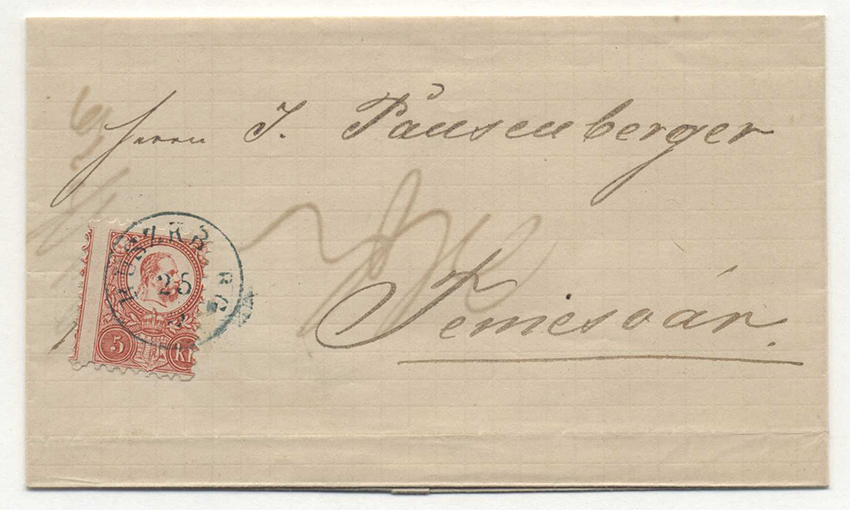 Herrn J. Pausenberger
Temesvár.
25
5 Kr